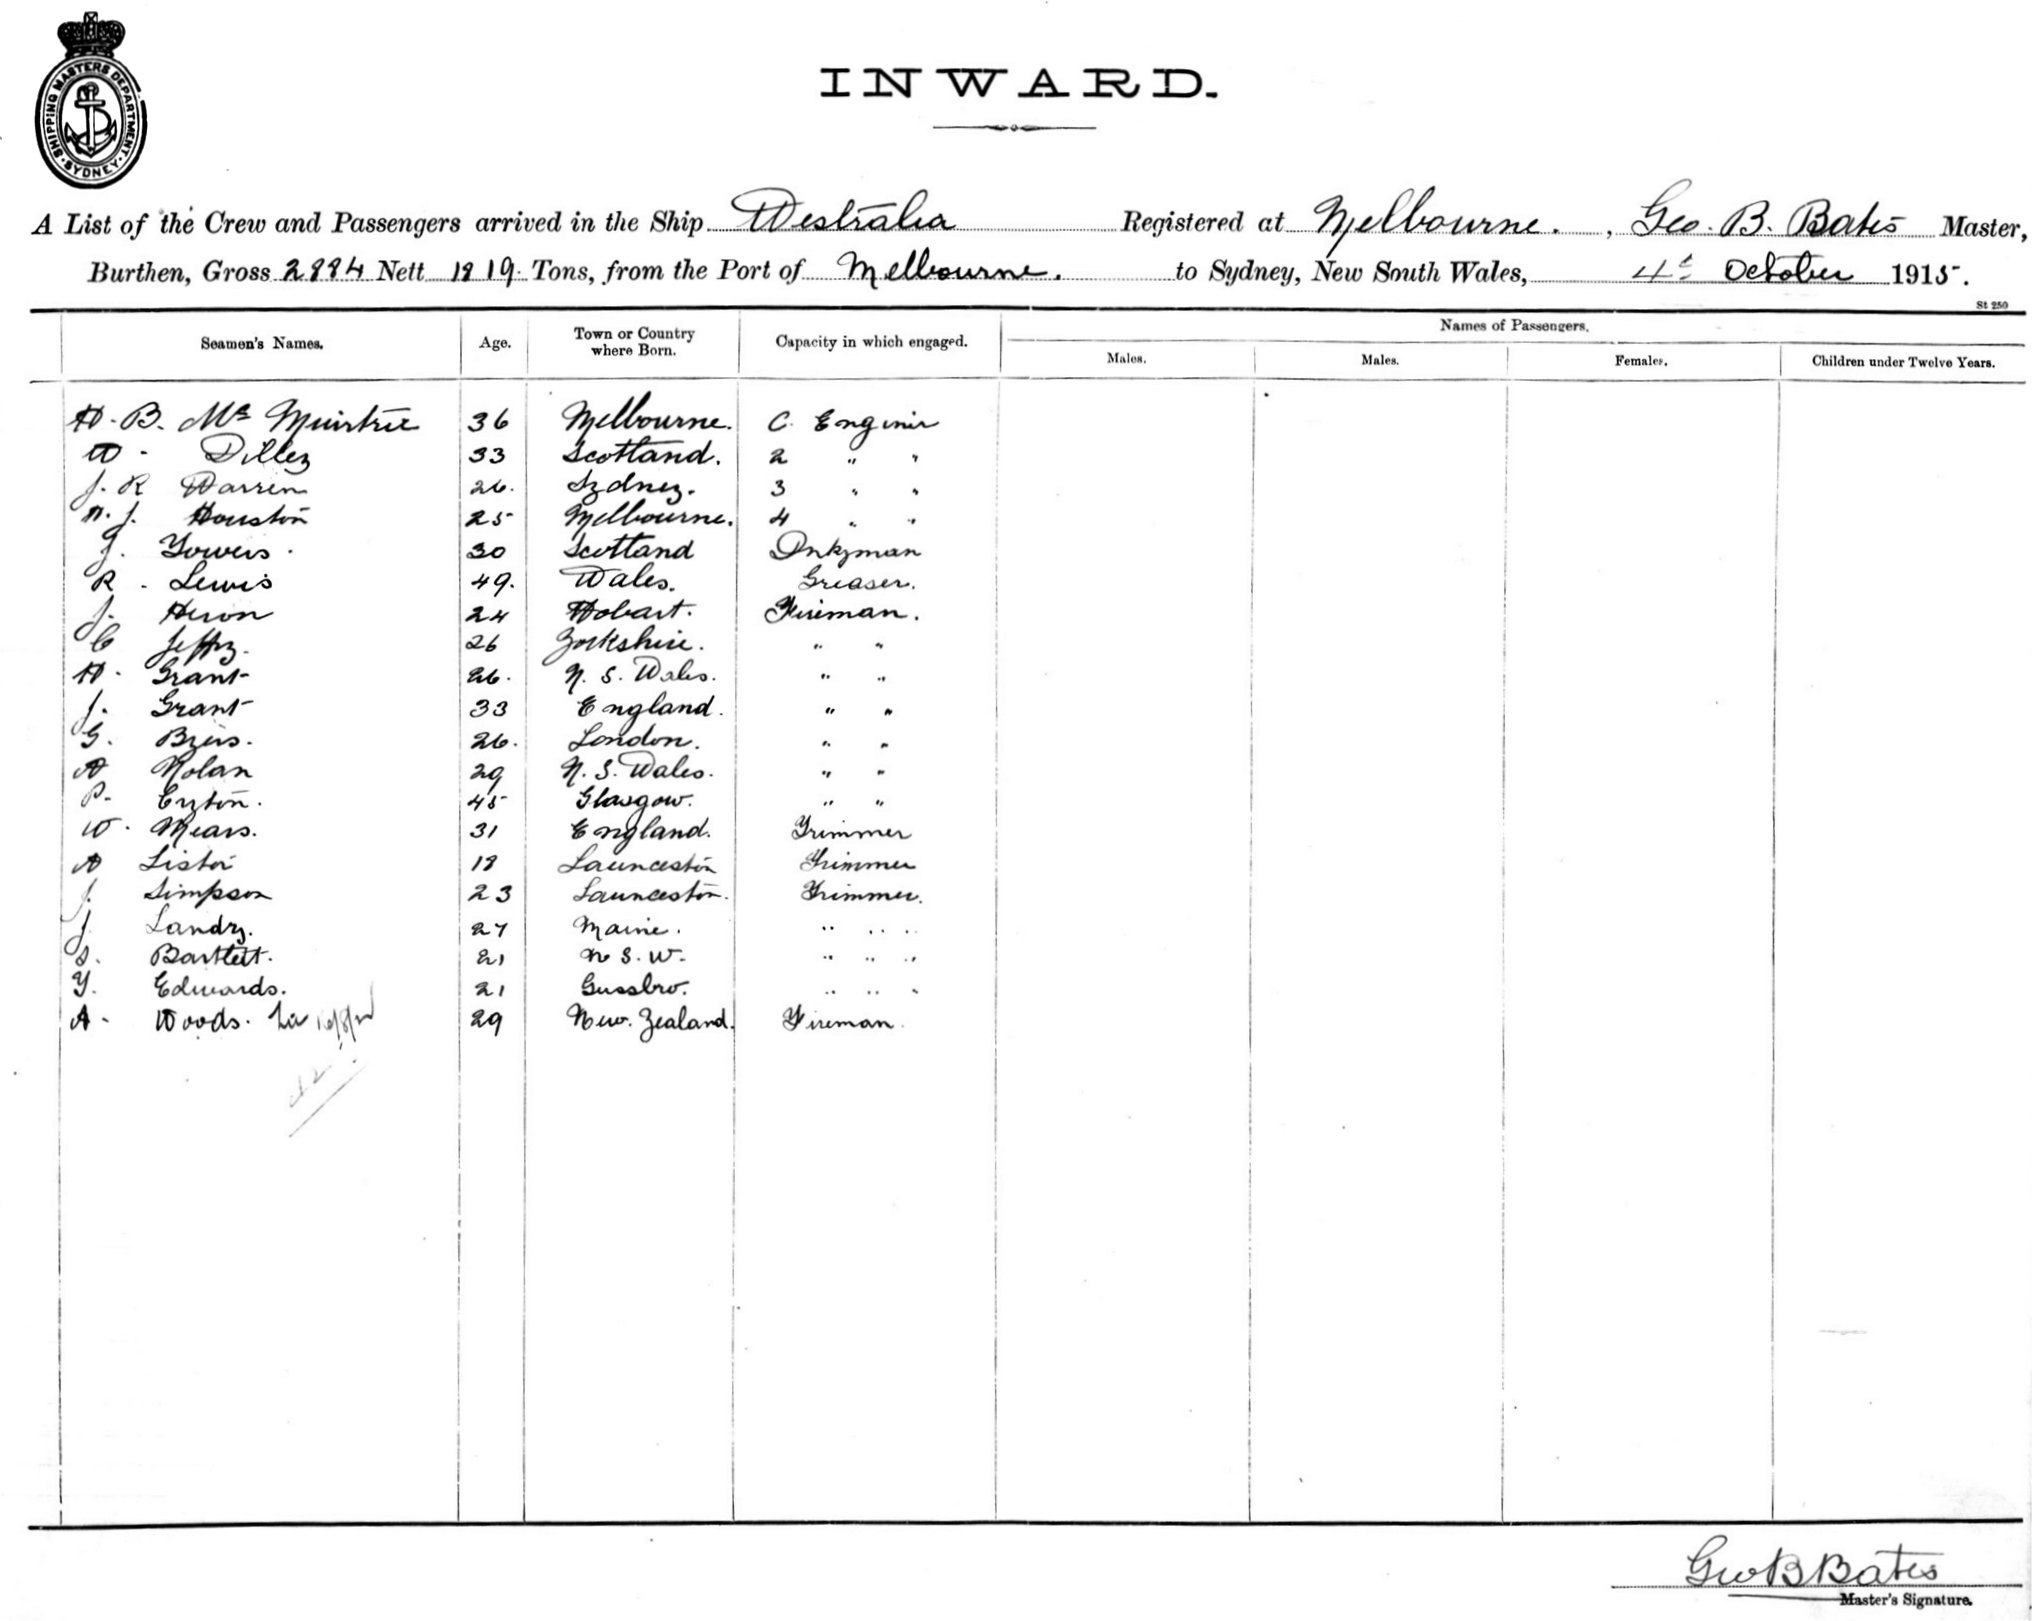 SHIPPING MASTERS DEPARTMENT. SYDNEY
INWARD.
A List of the Crew and Passengers arrived in the Ship Westralia Registered at Melbourne. , Geo. B. Bates Master,
Burthen, Gross 2884 Nett 1819 Tons, from the Port of Melbourne. to Sydney, New South Wales, 4th October 1915.
St 250
Seamen's Names. Age. Town or Country where Born. Capacity in which engaged. Names of Passengers.
Males. Males. Females. Children under Twelve Years.
H. B. Mc 36 Melbourne. C. Enginer
W. Dilley 33 Scotland. 2 " "
J. R Warren 26. Sydney. 3 " "
H. J. Houston 25 Melbourne. 4 " "
J. Towers. 30 Scotland Dnkyman
R. Lewis 49. Wales. Greaser.
J. Heron 24 Hobart. Fireman.
C Jeffry. 26 Yorkshire. " "
H. Grant 26. N. S. Wales. " "
J. Grant 33 England. " "
G. 26. London. " "
A Nolan 29 N. S. Wales. " "
P. 45 Glasgow. " "
W. Mears. 31 England. Trimmer
A Lister 18 Launceston Trimmer
J. Simpson 23 Launceston. Trimmer.
J Landry. 27 Maine. " " "
S. Bartlett. 21 N S. W. " " "
Y. Edwards. 21 " " "
A. Woods. 29 New. Zealand. Fireman.
Geo B Bates
Master's Signature.